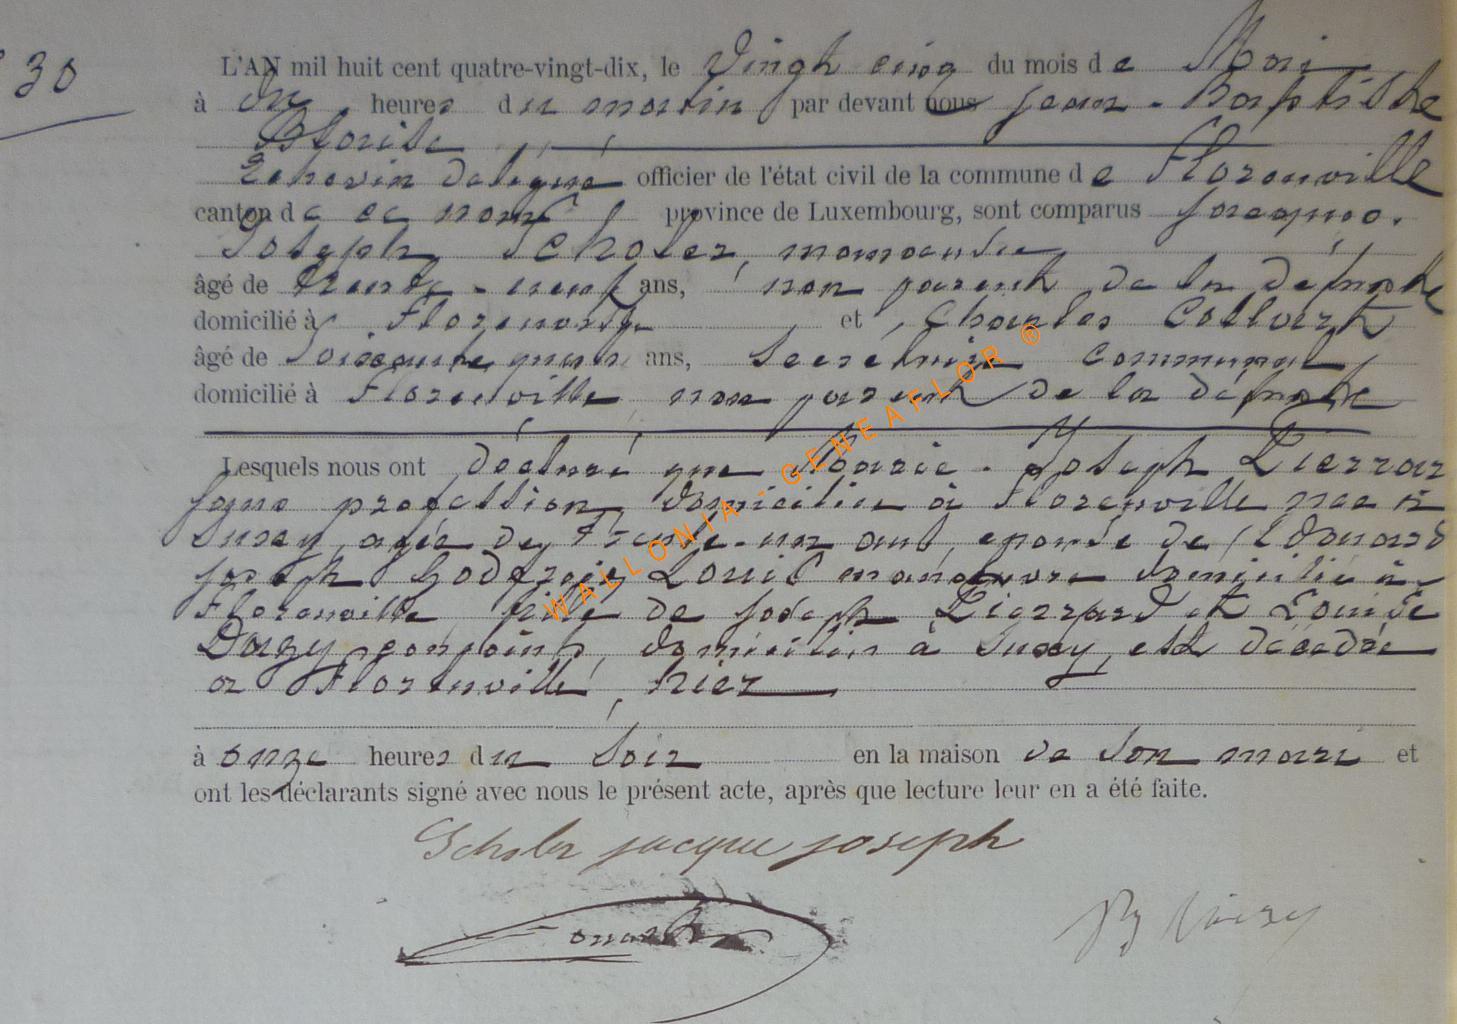 30
L'AN mil huit cent quatre-vingt-dix, le Vingt cinq du mois de Mai
à dix heures du matin par devant nous Jean-Baptiste
Echevin délégué officier de l'état civil de la commune de Florenville
canton de ce nom province de Luxembourg, sont comparus Jacques-
Joseph Scholer, manoeuvre
âgé de trente-neuf ans, non parent de la défunte
domicilié à Florenville et Charles Collart
âgé de Soixante ans, Secrétaire communal
domicilié à Florenville, non parent de la défunte
Lesquels nous ont déclaré que Marie-Joseph Pierrar
sans profession, domiciliée à Florenville née à
Suxy, agée de Trente-un ans, épouse de Edouard
Joseph Godefroid Louis manoeuvre domicilié à
Florenville, fille de Joseph Pierrard et Louise
Dazy, conjoints, domiciliés à Suxy, est décédée
à Florenville, hier
à onze heures du soir en la maison de son mari et
ont les déclarants signé avec nous le présent acte, après que lecture leur en a été faite.
Scholer jacque joseph
WALLONIA - GENEAFLOR ®